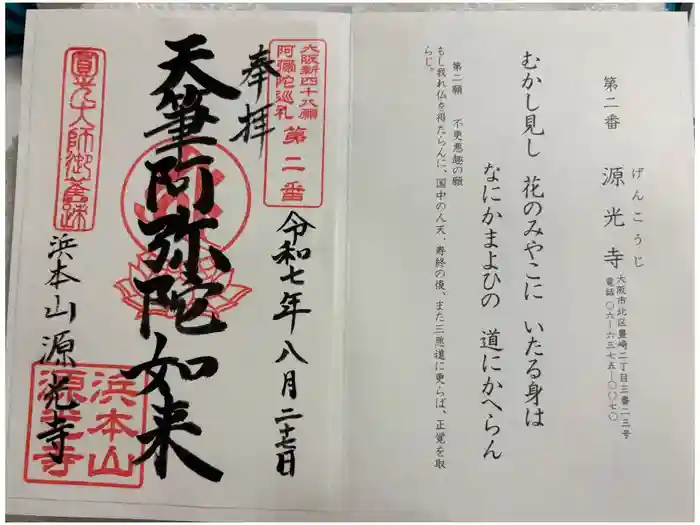 第二番　源光寺
げんこうじ
大阪市北区豊崎二丁目三番二三号
電話〇六―六三七五―〇〇七〇
むかし見し　花のみやこに　いたる身は
なにかまよひの　道にかへらん
第二願　不更悪趣の願
もし我れ仏を得たらんに、国中の人天、寿終の後、また三悪道に更らば、正覚を取
らじ。
大阪新四十八願
阿彌陀巡礼
第二番
奉拝
令和七年八月二十七日
天筆阿弥陀如来
圓光大師御舊跡
浜本山源光寺
浜本山
源光寺